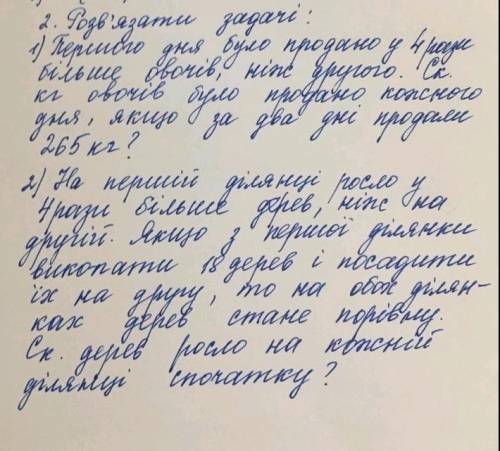 2. Розв'язати задачі:
1) Першого дня було продано у 4 рази
більше овочів, ніж другого. Ск.
кг овочів було продано кожного
дня, якщо за два дні продали
265 кг?
2) На першій ділянці росло у
4 рази більше дерев, ніж на
другій. Якщо з першої ділянки
викопати 18 дерев і посадити
їх на другу, то на обох ділян-
ках дерев стане порівну.
Ск. дерев росло на кожній
ділянці спочатку?